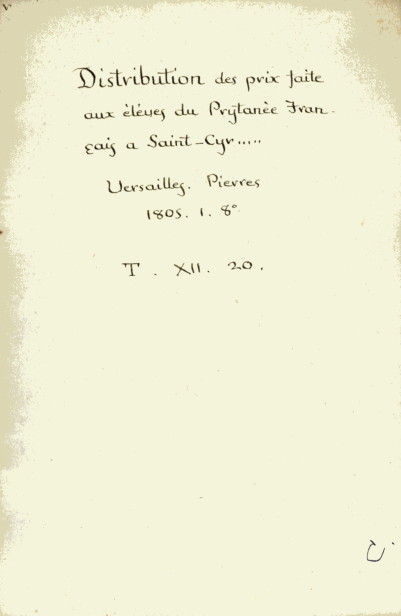 Distribution des prix faite
aux élèves du Prytanée Fran-
çais a Saint-Cyr.....
Versailles. Pierres
1805. 1. 8°.
T. XII. 20.